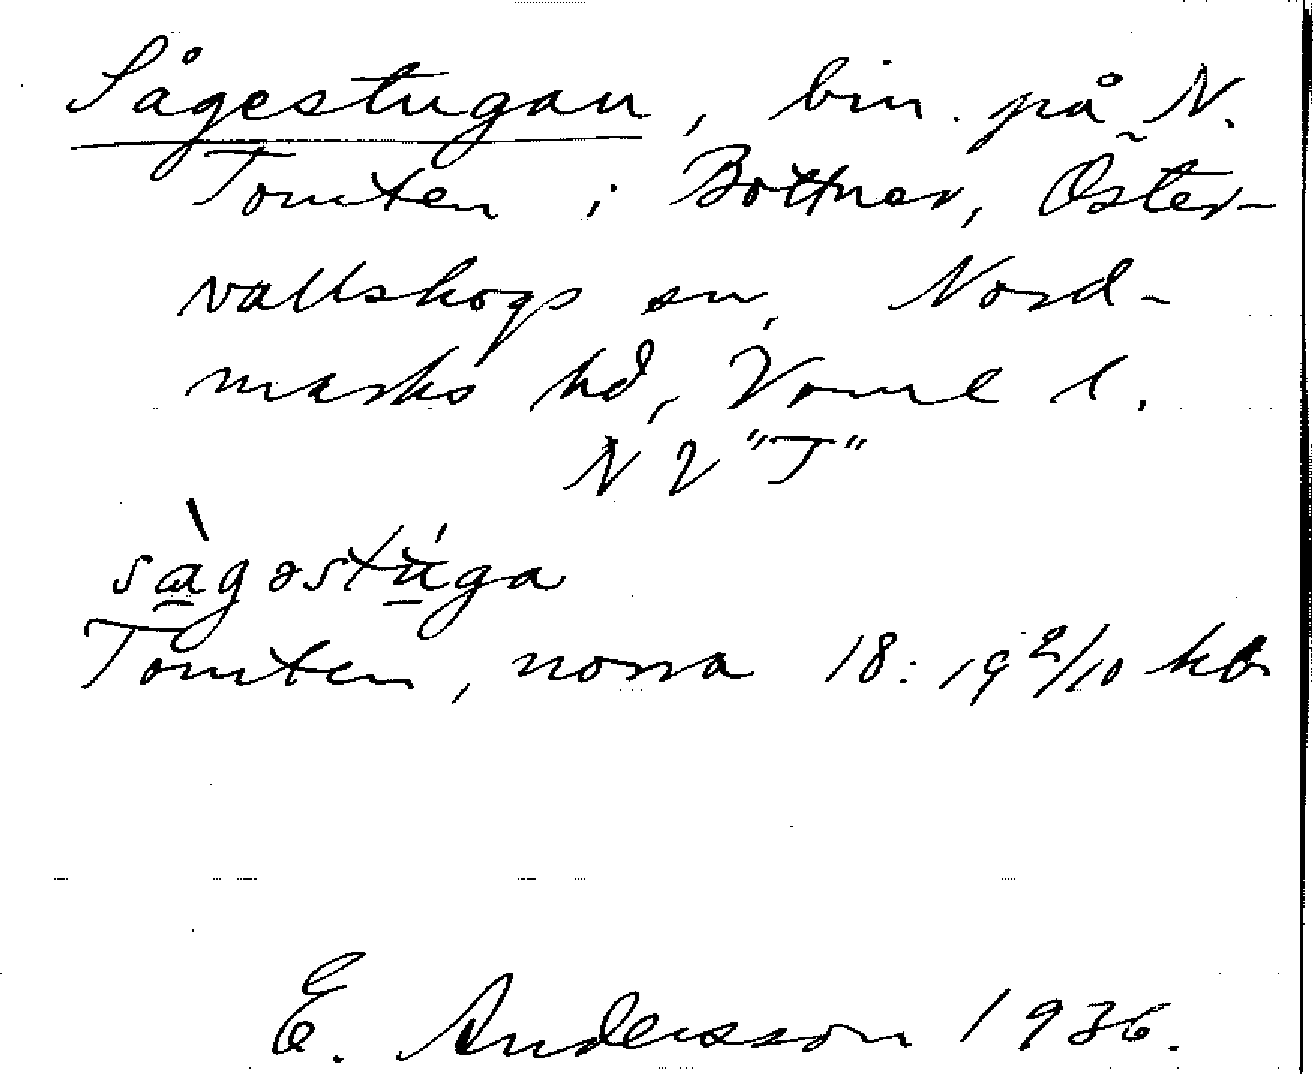 Sågestugan, bin. på N.
Tomten i Bottner, Öster-
vallskogs sn, Nord-
marks hd, Vrml l.
N V "T"
sàgəstúga
Tomten, norra 18: 19 2/10 kb
E. Andersson 1936.